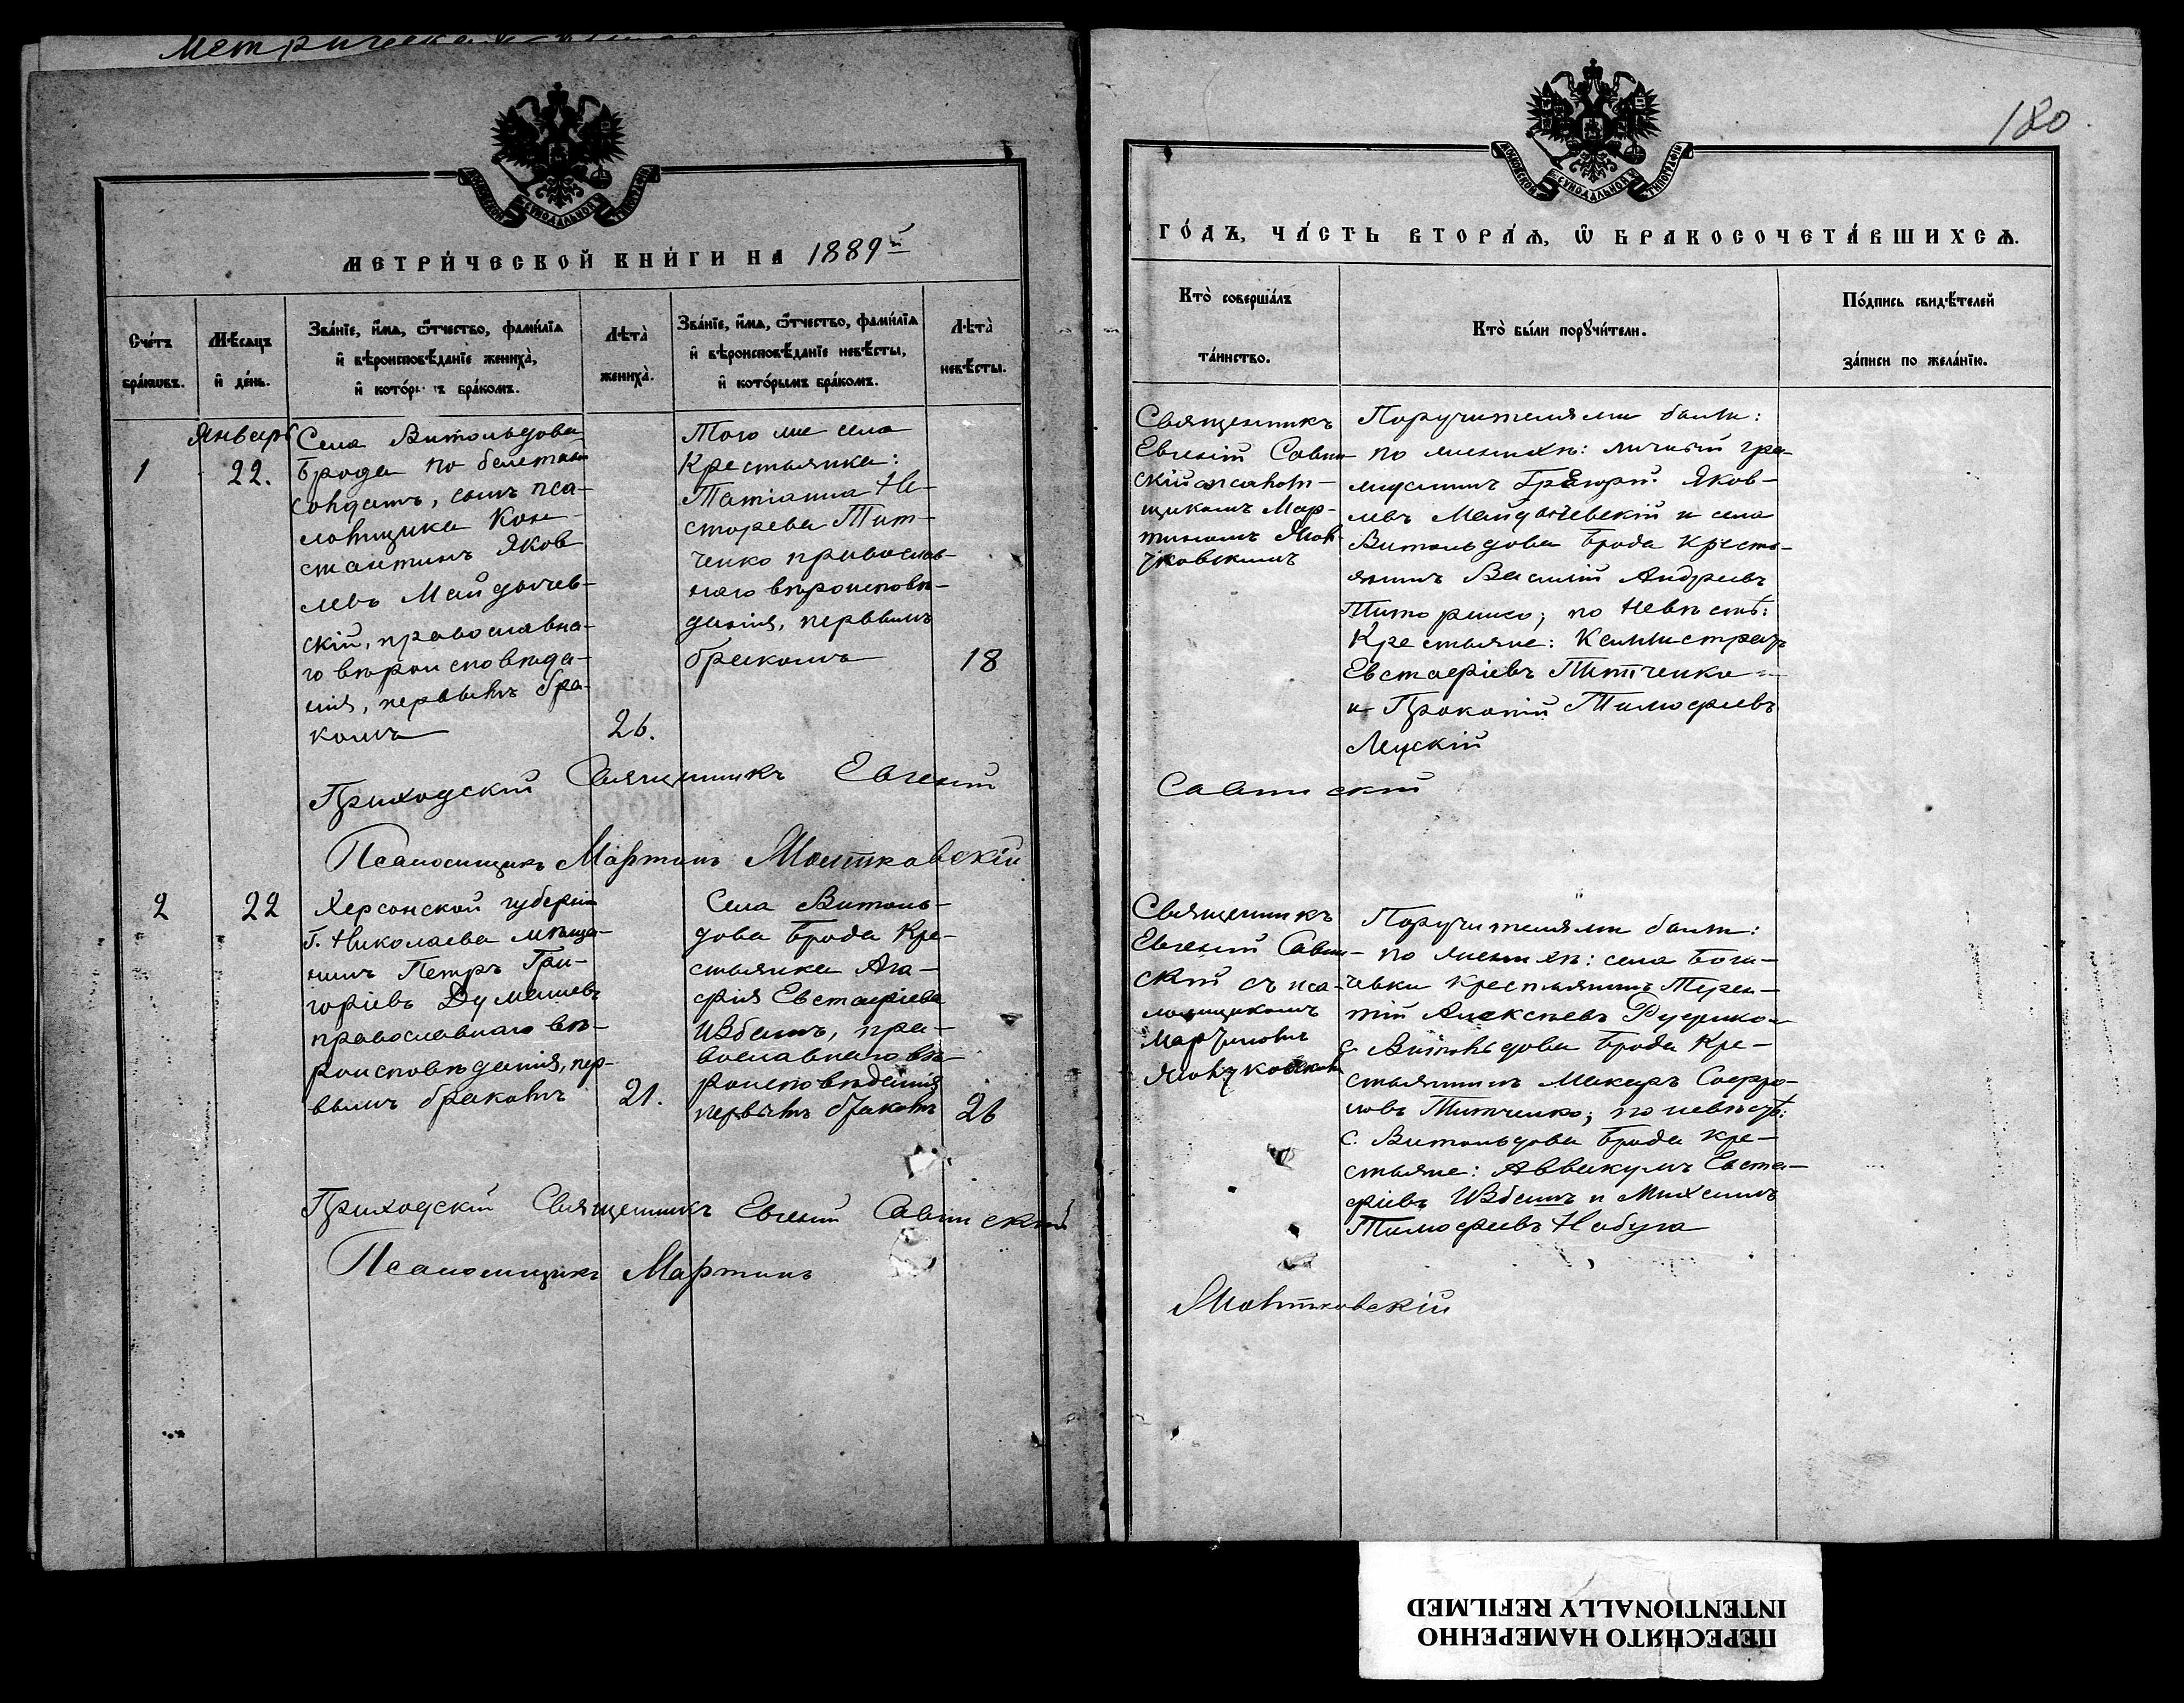 180
МЕТРИ́ЧЕСКОЙ КНИ́ГИ НА 1889й
ГО́ДЪ, ЧА́СТЬ ВТОРА́Ѧ, Ѽ БРАКОСОЧЕТА́ВШИХСѦ.
Сче́тъ бра́кѡвъ.
Мѣ́сѧцъ и҆ де́нь.
Зва́нїе, и҆́мѧ, ѻ҆́тчество, фами́лїѧ
и҆ вѣроисповѣ́данїе жениха̀,
и҆ кото́ры ъ бра́комъ.
Лѣта̀ жениха̀.
Зва́нїе, и҆́мѧ, ѻ҆́тчество, фами́лїѧ
и҆ вѣроисповѣ́данїе невѣ́сты,
и҆ кото́рымъ бра́комъ.
Лѣта̀ невѣ́сты.
Кто̀ соверша́лъ
та́инство.
Кто̀ бы́ли порꙋчи́тели.
По́дпись свидѣ́телей
за́писи по жела́нїю.
Январь
1
22.
Села Витольдова
Брода по билетный
солдатъ, сынъ пса-
ломщика Кон-
стантинъ Яков
левъ Майдачев-
скій, православна-
го вѣроисповѣда-
нія, первымъ бра-
комъ
26.
Того же села
Крестьянка:
Татіанна Не-
сторева Тит-
ченко православ-
наго вѣроисповѣ-
данія, первымъ
бракомъ
18
Священникъ
Евгеній Савин-
скій
щикомъ Мар-
тиномъ
Поручителями были:
по женихѣ: личный гра-
жданинъ Григорій Яков-
левъ Майдачевскій и села
Витольдова Брода кресть-
янинъ Василій Андреевъ
по невѣстѣ:
Крестьяне: Каллистратъ
Евстафіевъ Титченко
и Прокопій Тимофеевъ
Луцкій
Приходскій Священникъ Евгеній
Савинскій
Псаломщикъ Мартинъ
2
22
Херсонской губерніи
Г. Николаева мѣща-
нинъ Петръ Гри-
горіевъ
православнаго вѣ-
роисповѣданія, пер-
вымъ бракомъ
21.
Села Витоль-
дова Брода кре-
стьянка Ага-
фія Евстафіева
пра-
вославнаго вѣ-
роисповѣданія
первымъ бракомъ
26
Священникъ
Евгеній Савин-
скій съ пса-
ломщикомъ
Мартиномъ
Поручителями были:
по женихѣ: села Бога-
чевки крестьянинъ Терен-
тій Алексѣевъ
с. Витольдова Брода кре-
стьянинъ Макаръ Софро-
новъ Титченко; по невѣстѣ:
с. Витольдова Брода кре-
стьяне: Аввакумъ Евста-
фіевъ и Михаилъ
Тимофеевъ Набука
Приходскій Священникъ Евгеній Савинскій
Псаломщикъ Мартинъ
ПЕРЕСНЯТО НАМЕРЕННО
INTENTIONALLY REFILMED